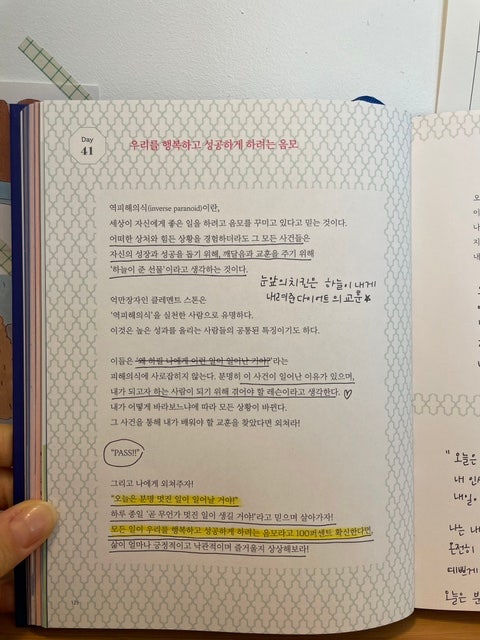 Day
41
우리를 행복하고 성공하게 하려는 음모
역피해의식(inverse paranoid)이란,
세상이 자신에게 좋은 일을 하려고 음모를 꾸미고 있다고 믿는 것이다.
어떠한 상처와 힘든 상황을 경험하더라도 그 모든 사건들은
자신의 성장과 성공을 돕기 위해, 깨달음과 교훈을 주기 위해
'하늘이 준 선물'이라고 생각하는 것이다.
눈앞의치킨은 하늘이 내게
내려준 다이어트의 교훈
억만장자인 클레멘트 스톤은
'역피해의식'을 실천한 사람으로 유명하다.
이것은 높은 성과를 올리는 사람들의 공통된 특징이기도 하다.
이들은 '왜 하필 나에게 이런 일이 일어난 거야?'라는
피해의식에 사로잡히지 않는다. 분명히 이 사건이 일어난 이유가 있으며,
내가 되고자 하는 사람이 되기 위해 겪어야 할 레슨이라고 생각한다.
내가 어떻게 바라보느냐에 따라 모든 상황이 바뀐다.
그 사건을 통해 내가 배워야 할 교훈을 찾았다면 외쳐라!
"PASS!!"
그리고 나에게 외쳐주자!
"오늘은 분명 멋진 일이 일어날 거야!"
하루 종일 '곧 무언가 멋진 일이 생길 거야!'라고 믿으며 살아가자!
모든 일이 우리를 행복하고 성공하게 하려는 음모라고 100퍼센트 확신한다면,
삶이 얼마나 긍정적이고 낙관적이며 즐거울지 상상해보라!
"오늘은
내 인
내일이
나는 내
온전히
예쁘게
오늘 분